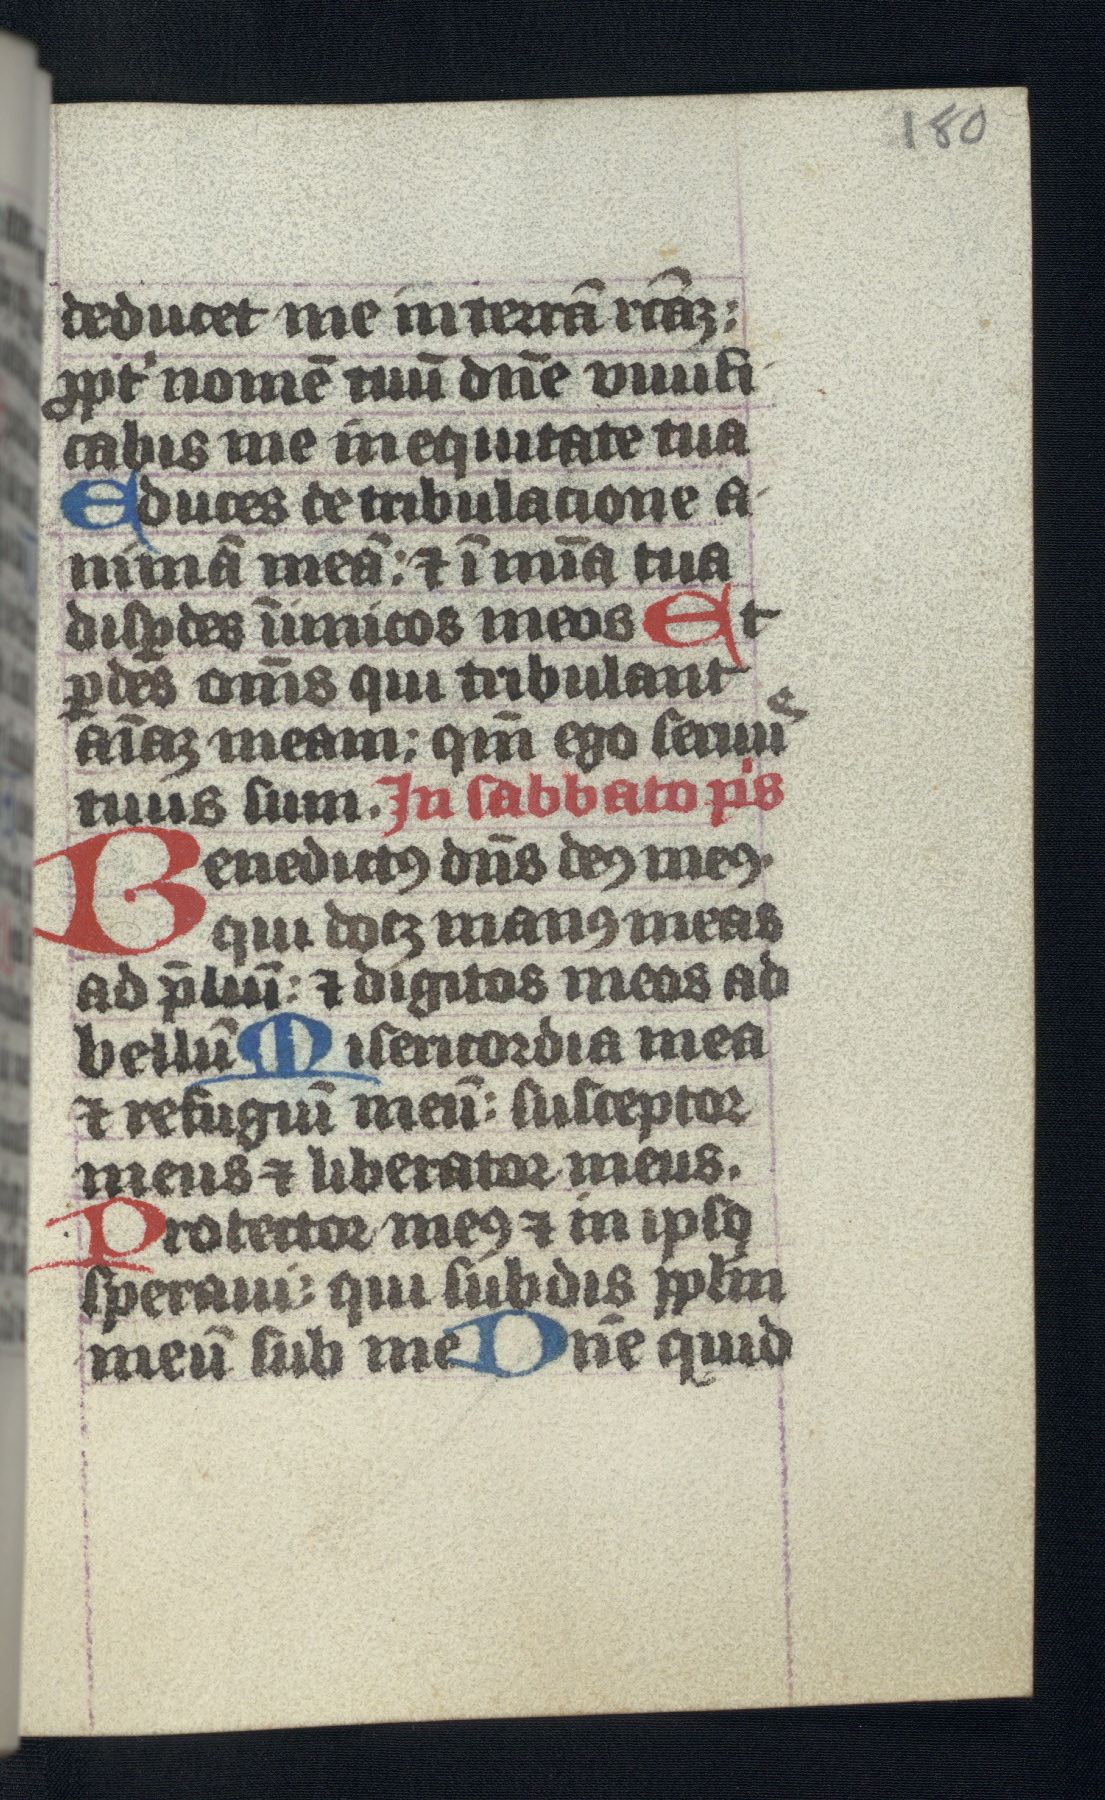 180
deducet me in terrā rcāꝫ:
ꝓpt' nomē tuū dn̄e uiuifi
cabis me in equitate tua
Educes de tribulacione a
nimā meā: ⁊ ī mīa tua
disꝑdes īimicos meos Et
ꝑdēs om̄s qui tribulant
aīaꝫ meam: qm̄ ego seruuˢ
tuus sum. In sabbato p's
Benedictꝰ dn̄s deꝰ meꝰ.
qui docꝫ manꝰ meas
ad p̄liū: ⁊ digitos meos ad
bellū Misericordia mea
⁊ refugiū meū: susceptor
meus ⁊ liberator meus.
Protector meꝰ ⁊ in ipso
speraui: qui subdis pplm
meū sub me Dn̄e quid